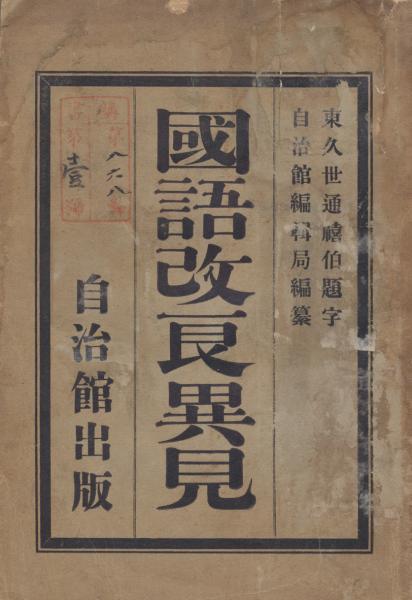 東久世通禧伯題字
自治館編輯局編纂
國語改良異見
自治館出版
八六八
壹